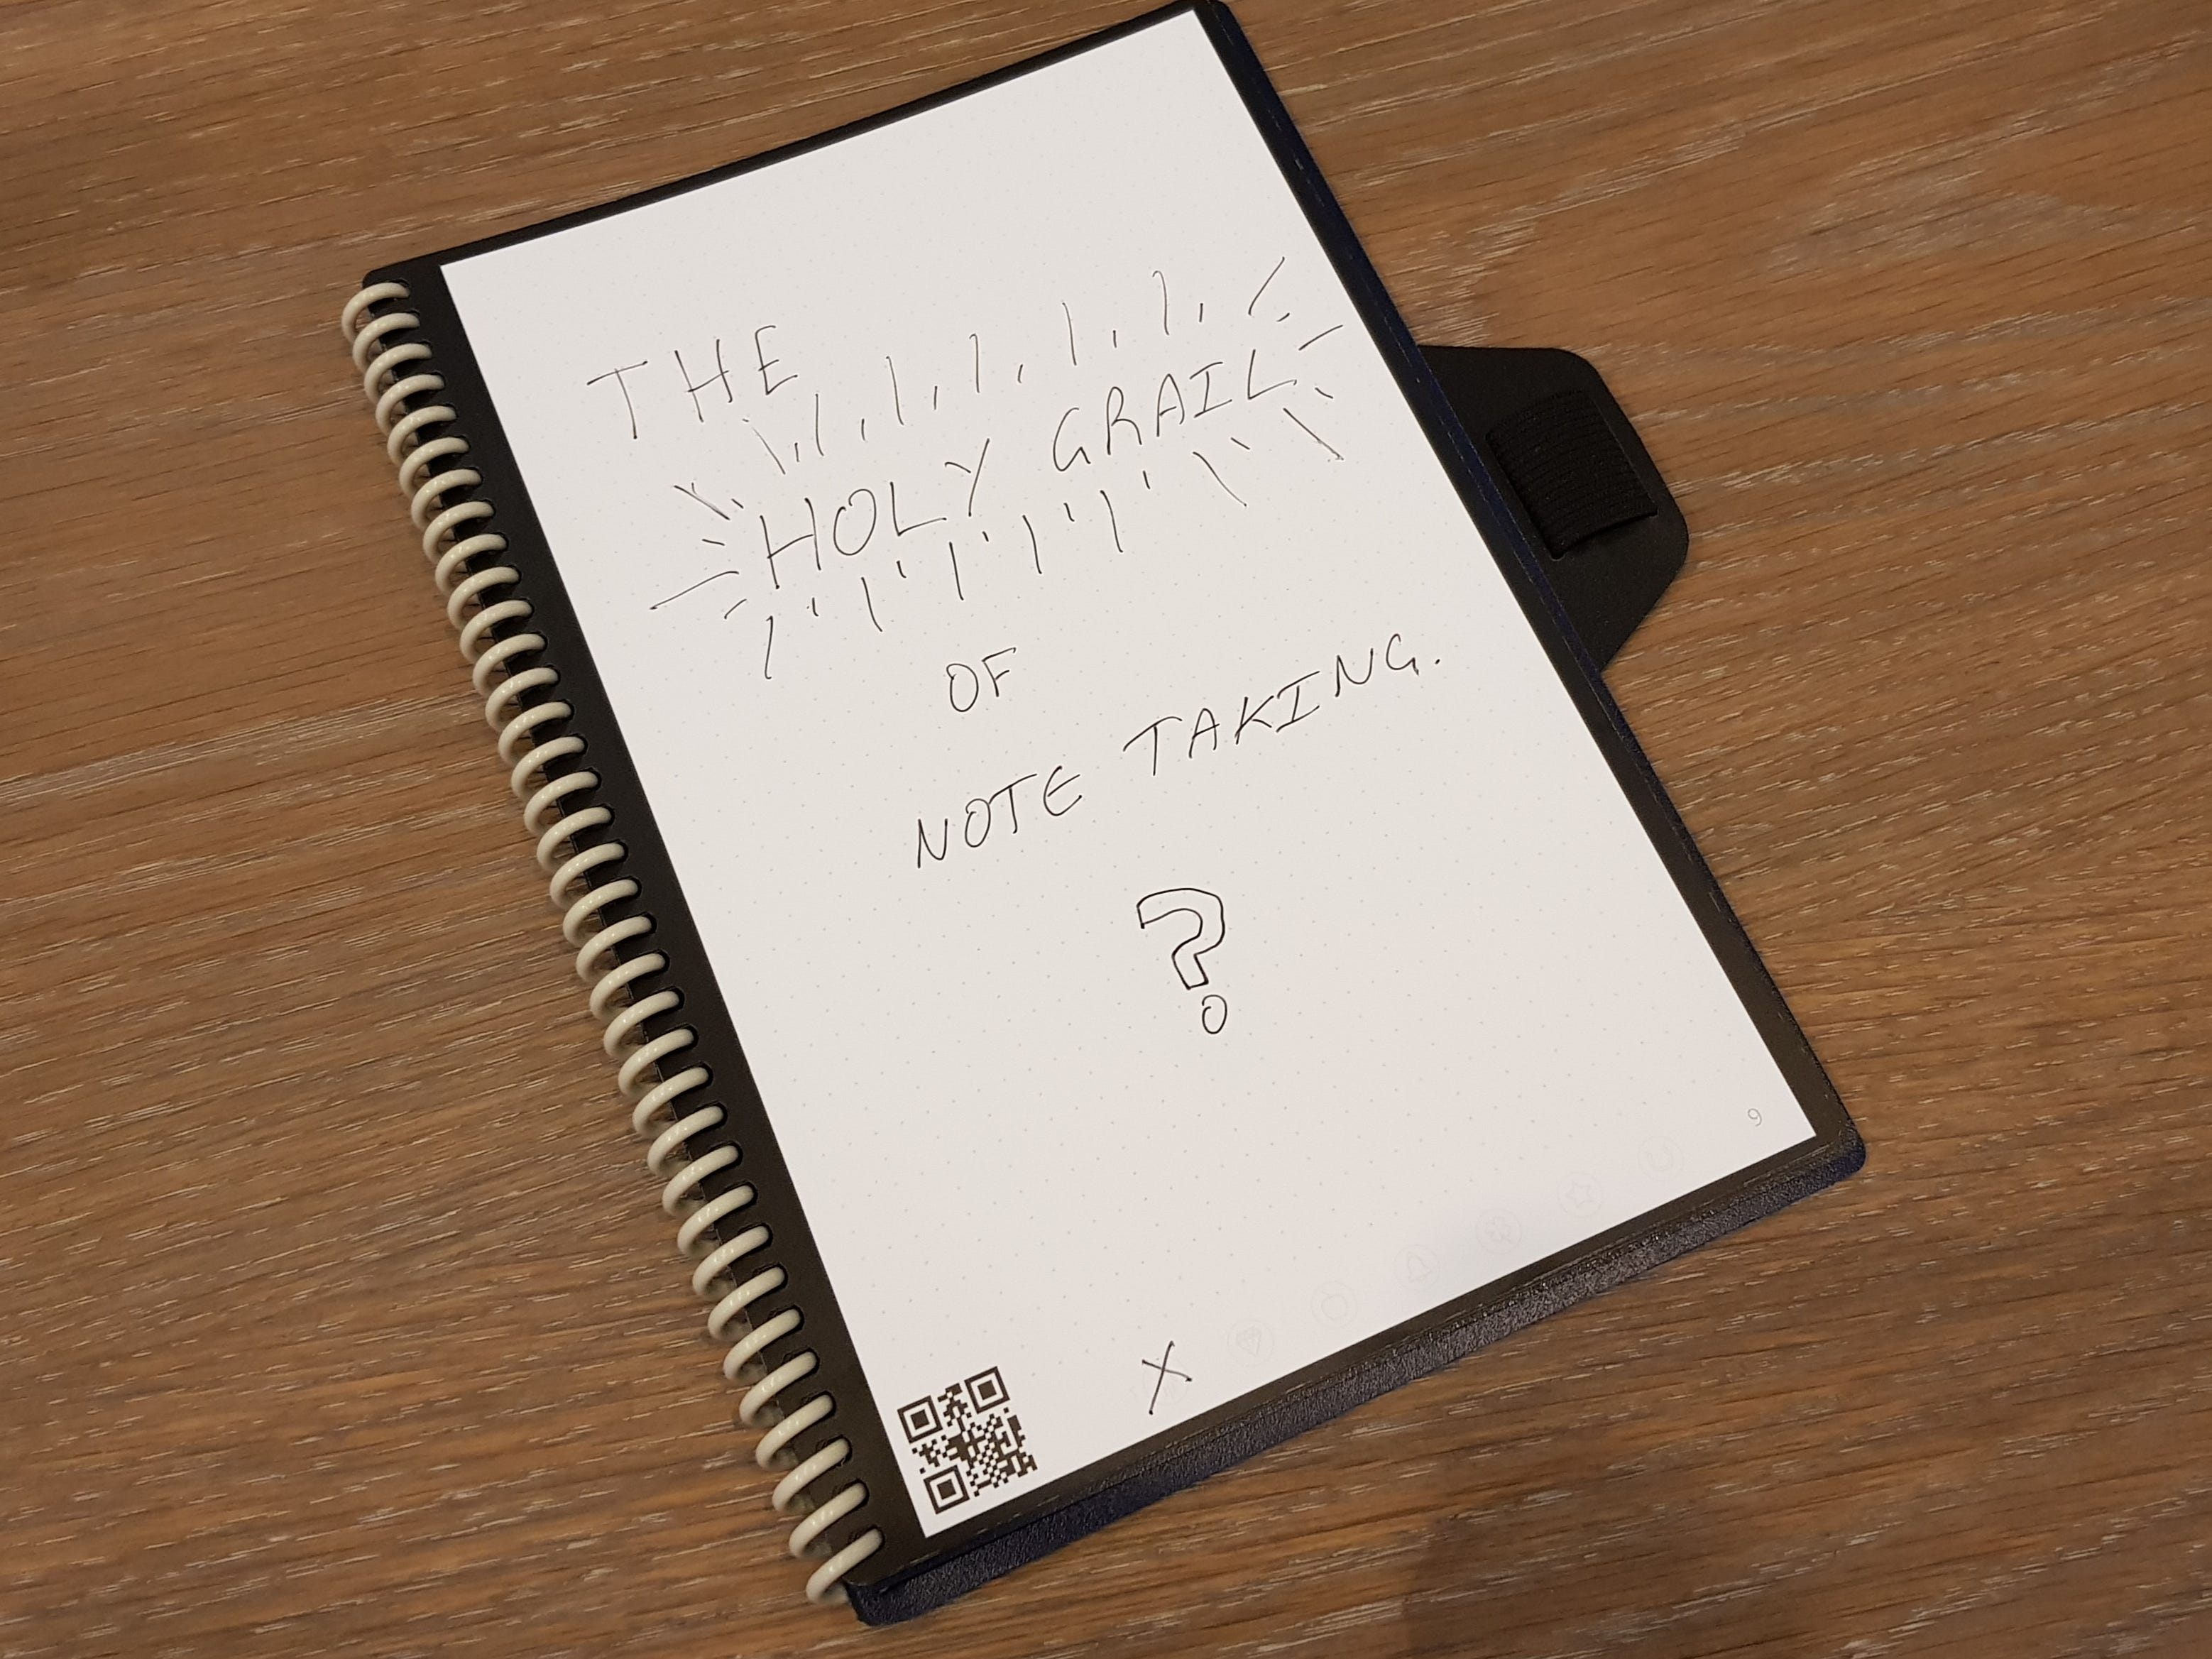 THE
HOLY GRAIL
OF
NOTE TAKING.
?
9
X